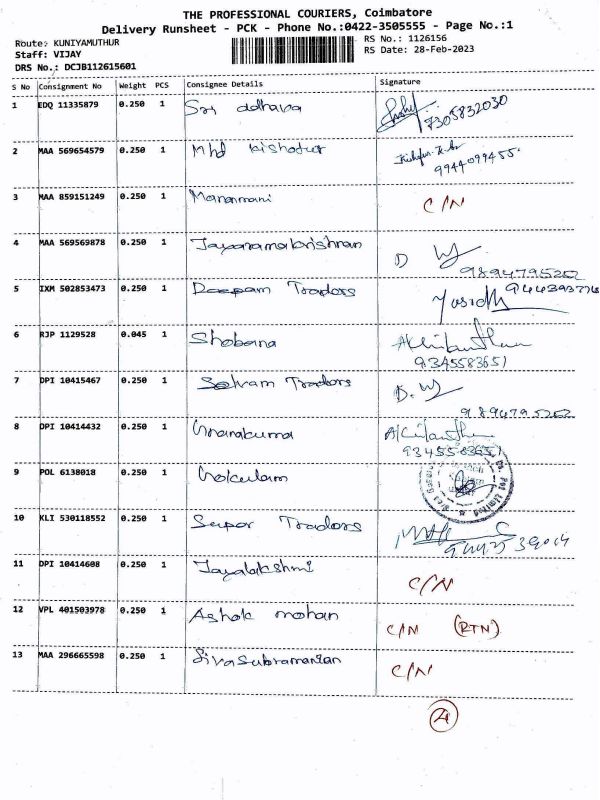 THE PROFESSIONAL COURIERS, Coimbatore
Delivery Runsheet - PCK - Phone No.:0422-3505555 - Page No.:1
Route: KUNIYAMUTHUR
RS No.: 1126156
Staff: VIJAY
RS Date: 28-Feb-2023
DRS No.: DCJB112615601
S No Consignment No Weight PCS Consignee Details Signature
1 EDQ 11335879 0.250 1
7305832030
2 MAA 569654579 0.250 1 Mhd Kishorur
9944099455
3 MAA 859151249 0.250 1 Manamani C/N
4 MAA 569569878 0.250 1 Jayaramakrishnan D
9894795202
5 IXM 502853473 0.250 1 Deepam Tradors
6 RJP 1129528 0.045 1 Shobana
9345583651
7 DPI 10415467 0.250 1 Selvam Tradors D.
9894795202
8 DPI 10414432 0.250 1 Gnanakuma
9345583651
9 POL 6138018 0.250 1 Gokulam
10 KLI 530118552 0.250 1 Super Tradors
11 DPI 10414608 0.250 1 Jayalakshmi C/N
12 VPL 401503978 0.250 1 Ashok mohan C/N (RTN)
13 MAA 296665598 0.250 1 Sivasubramanian C/N